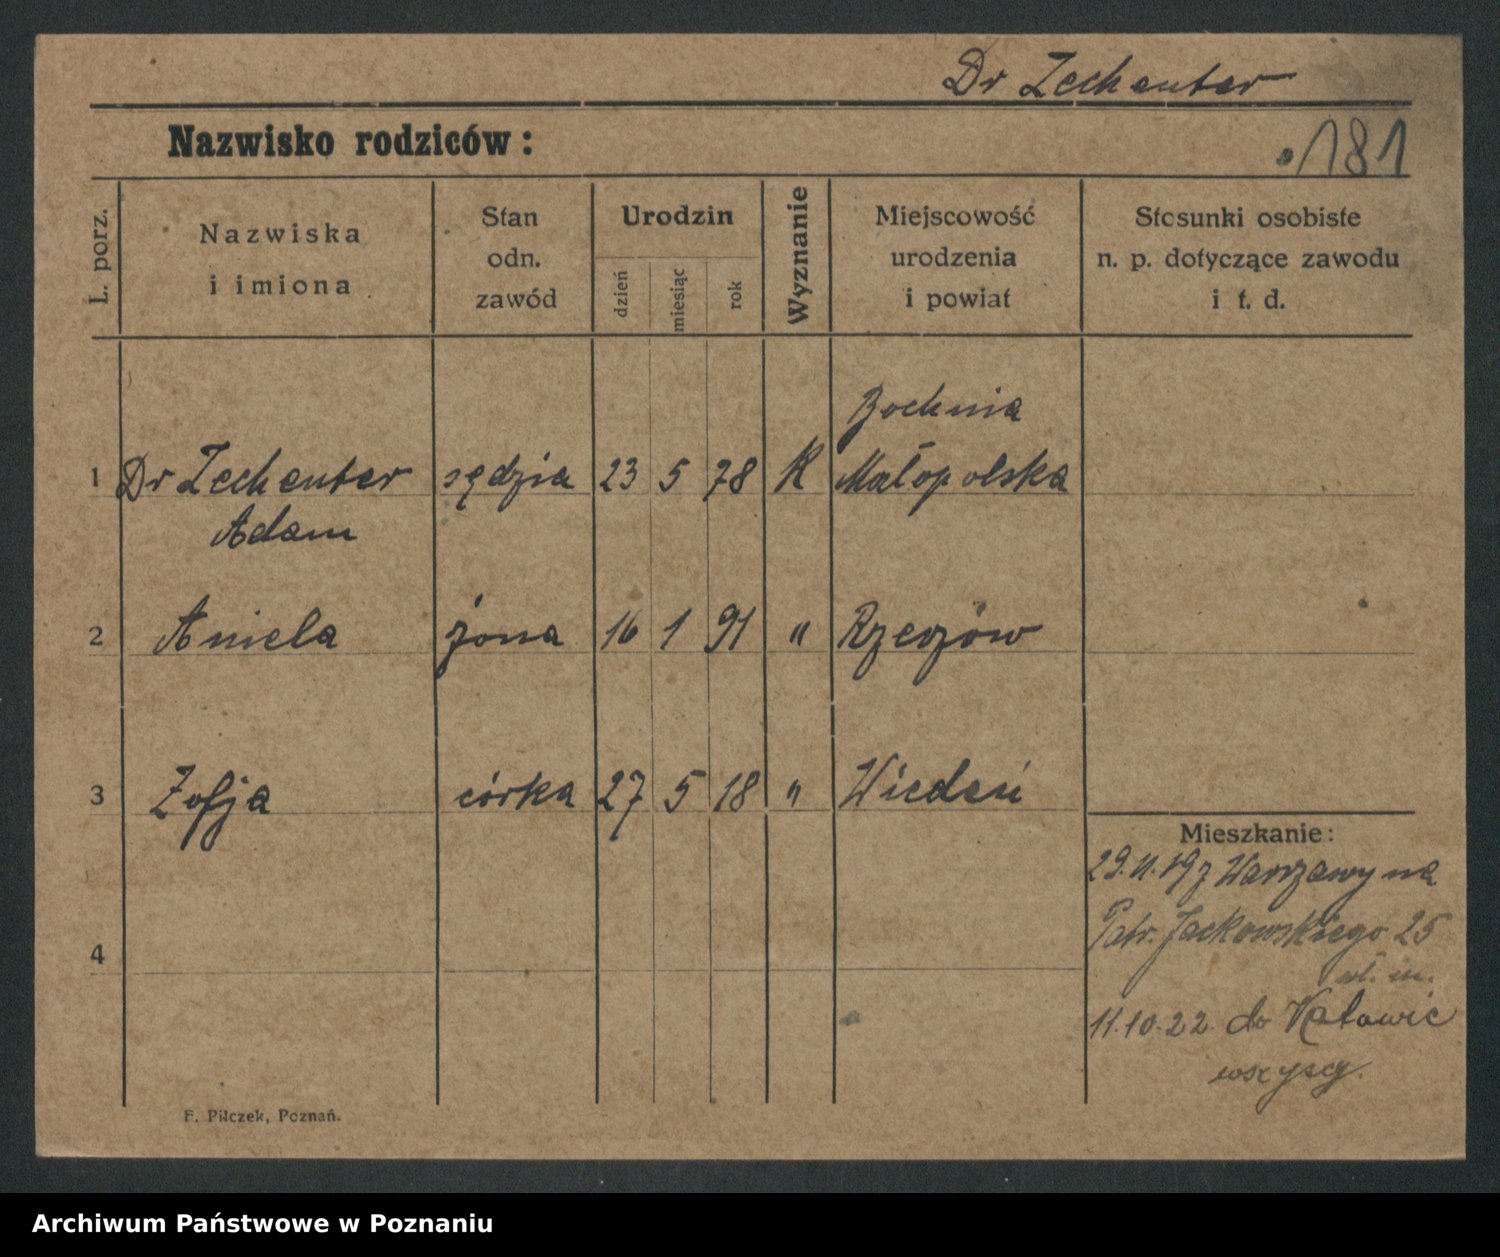 Dr Zechenter
Nazwisko rodziców:
181
L. porz.
Nazwiska
i imiona
Stan
odn.
zawód
Urodzin
dzień
miesiąc
rok
Wyznanie
Miejscowość
urodzenia
i powiat
Stosunki osobiste
n. p. dotyczące zawodu
i t. d.
Bochnia
1 Dr Zechenter sędzia 23 5 78 K Małopolska
Adam
2 Aniela żona 16 1 91 " Rzeszów
3 Zofja córka 27 5 18 " Wiedeń
Mieszkanie:
29.11.19 z Warszawy na
4
Patr. Jackowskiego 25
11.10.22. do Katowic
wszyscy.
F. Pilczek, Poznań.
Archiwum Państwowe w Poznaniu